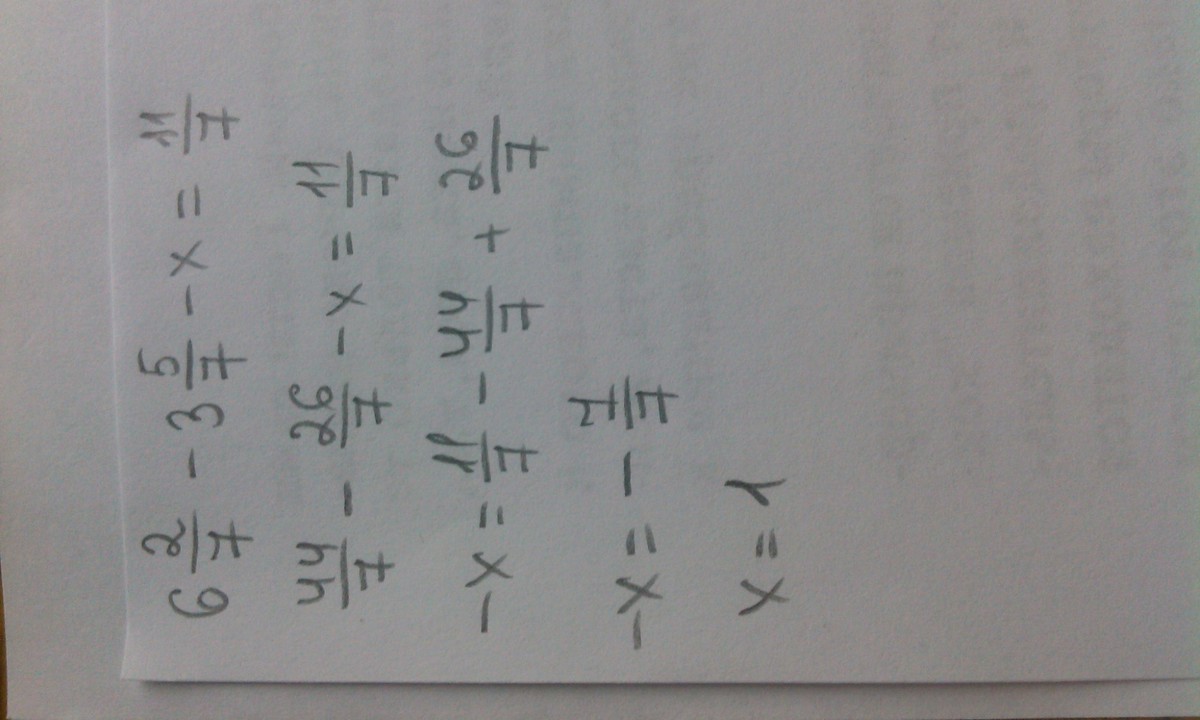 6 2/7 - 3 5/7 - x = 11/7
44/7 - 26/7 - x = 11/7
-x = 11/7 - 44/7 + 26/7
-x = - 7/7
x = 1